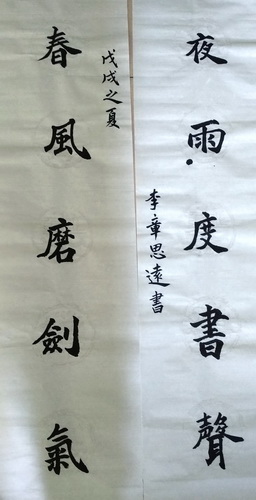 夜雨度書聲
李章思遠書
戊戌之夏
春風磨劍氣